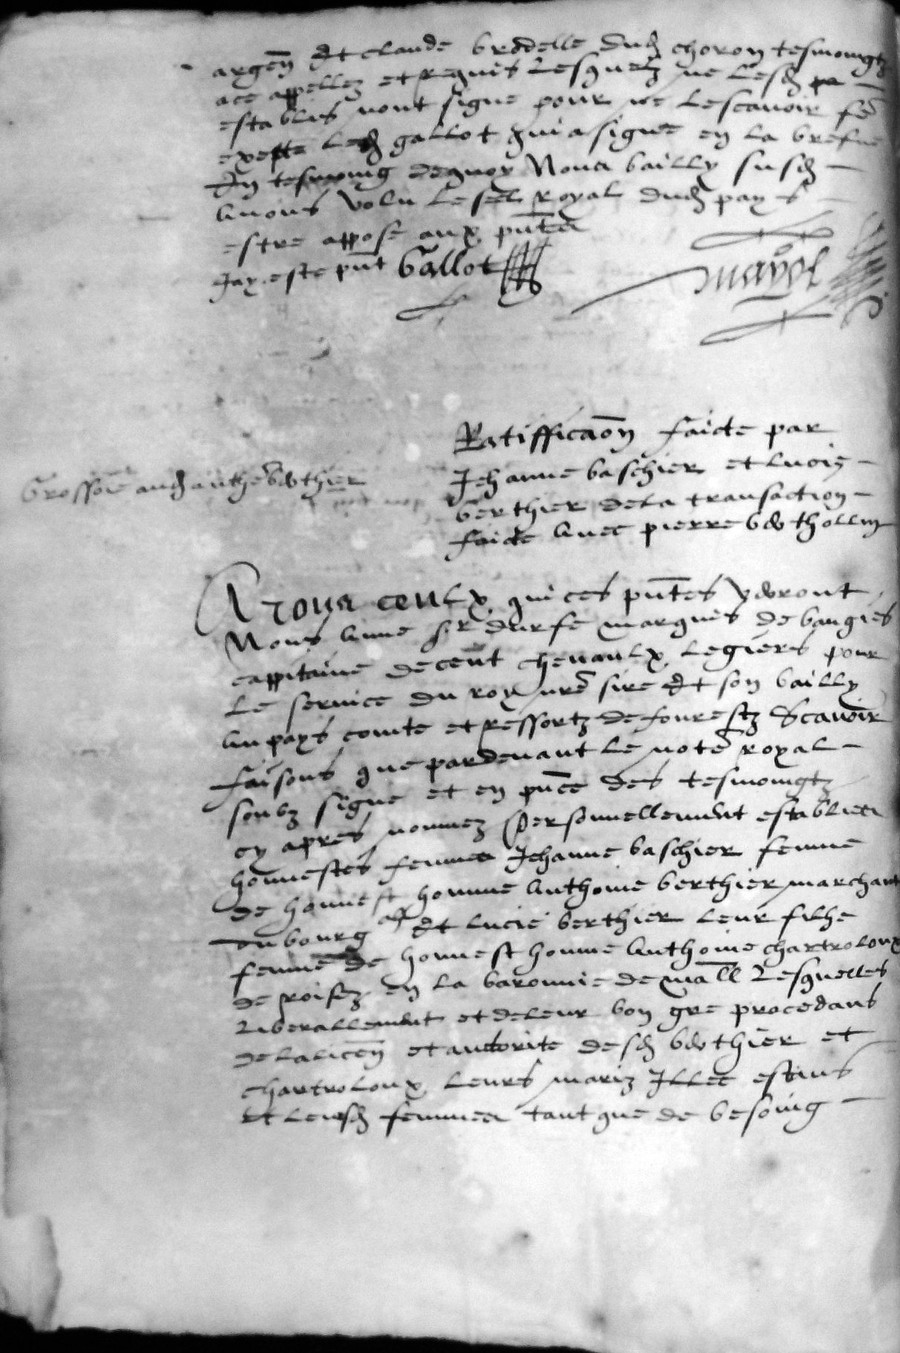 argen̄ Et claude brodelle dud choron tesmoingtz
a ce appellez et requis Lesquelz ne lesd
establis nont signe pour ne Lescavoir
exepte led gallot qui a signe en la brefue
En tesmoing dequoy Nous bailly susd
avons volu le seel royal dud pays
estre appose aux pn̄tes
Jay este pn̄t Gallot
mayol
Ratifficaōn faicte par
Jehanne baschier et lucie
berthier de la transaction
faicte avec pierre berthollin
Grossoie aud anthe berthier
A Tous ceulx qui ces pn̄tes verront
Nous anne sr durfe marquis de baugies
cappitaine de cent chevaulx legiers pour
le service du roy nre sire Et son bailly
au pays conte et ressortz de fourestz Scavoir
faisons que pardevant le note royal
soubz signe et en pn̄ce des tesmoingtz
cy apres nommez Personnellement establies
honnestes femmes Jehanne baschier femme
de honnest homme anthoine berthier marchant
du bourg Et lucie berthier leur filhe
femme de honnest homme anthoine chartroloux
de roisez en la baronnie de Lesquelles
liberallement et de leur bon gre procedans
de la licen̄ et auctorite desd berthier et
chartroloux leurs mariz Illec estans
Et leursd femmes tant que de besoing